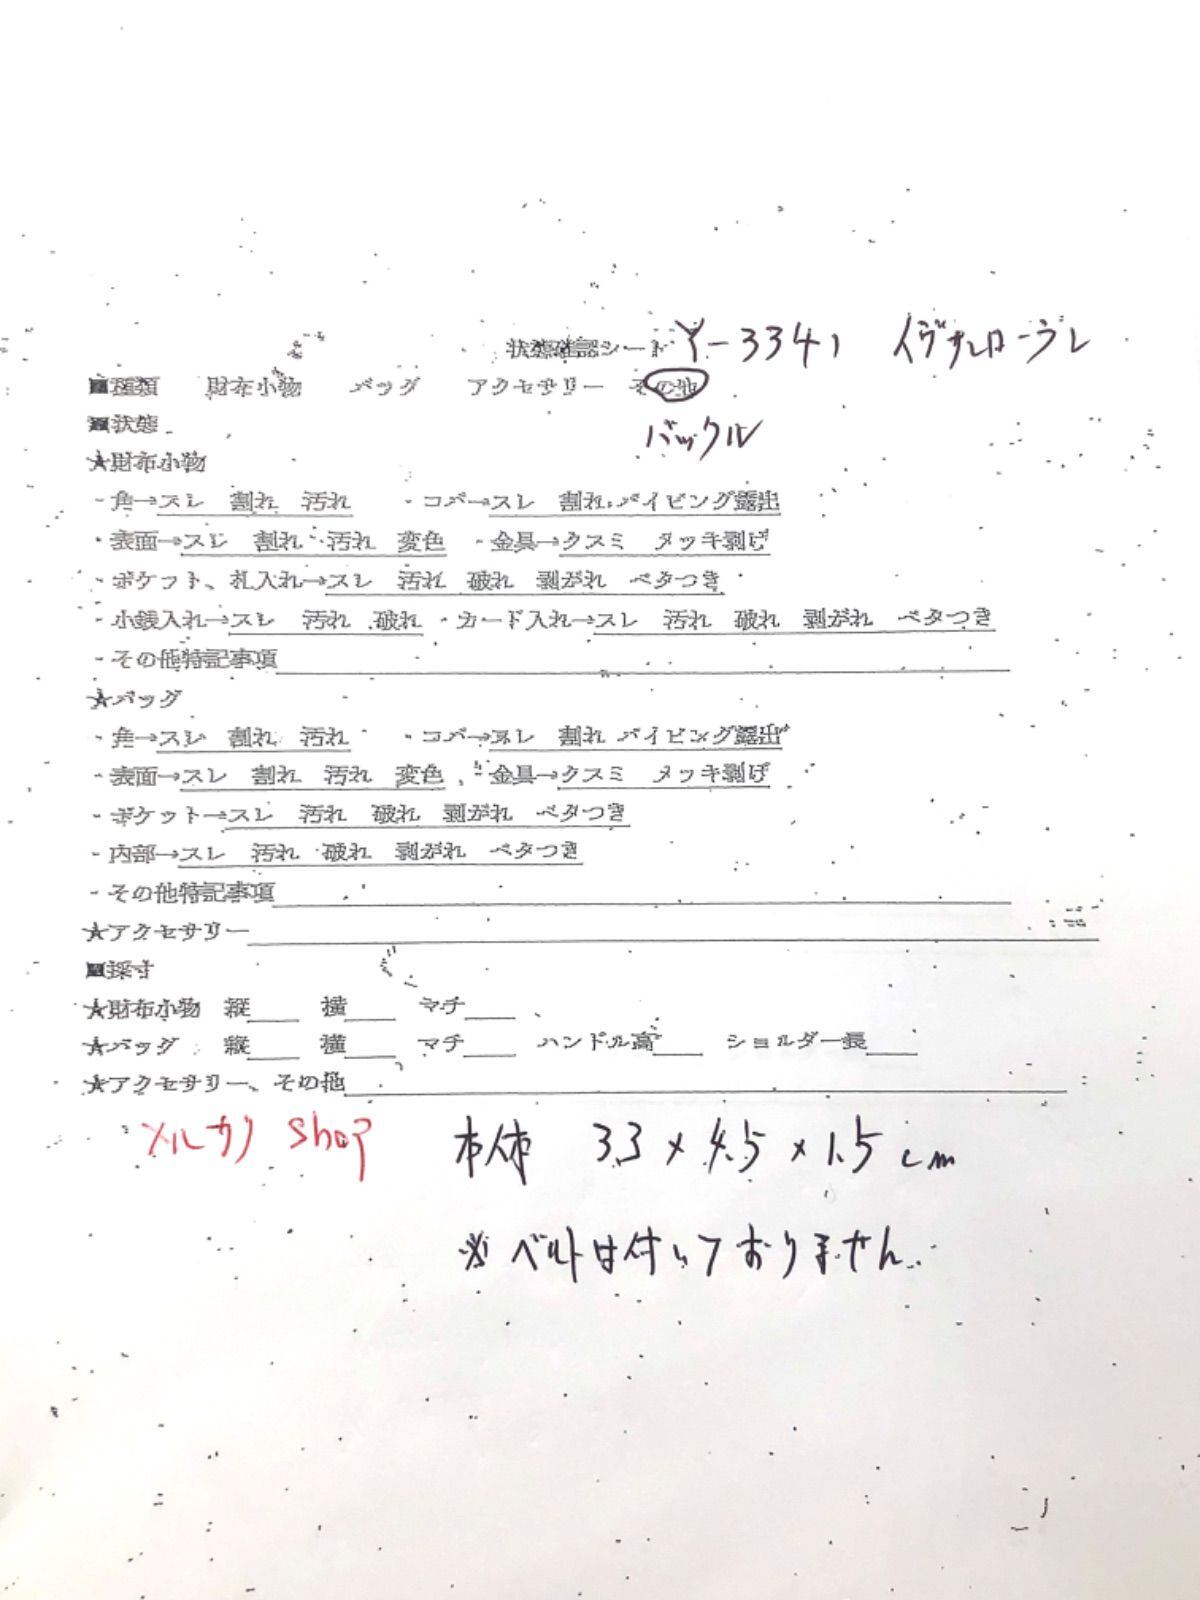 状態確認シート Y-3341 イヴサンローラン
■種類 財布小物 バッグ アクセサリー その他
■状態 バックル
★財布小物
・角→スレ 割れ 汚れ ・コバ→スレ 割れ パイピング露出
・表面→スレ 割れ 汚れ 変色 ・金具→クスミ メッキ剥げ
・ポケット、札入れ→スレ 汚れ 破れ 剥がれ ベタつき
・小銭入れ→スレ 汚れ 破れ ・カード入れ→スレ 汚れ 破れ 剥がれ ベタつき
・その他特記事項
★バッグ
・角→スレ 割れ 汚れ ・コバ→スレ 割れ パイピング露出
・表面→スレ 割れ 汚れ 変色 ・金具→クスミ メッキ剥げ
・ポケット→スレ 汚れ 破れ 剥がれ ベタつき
・内部→スレ 汚れ 破れ 剥がれ ベタつき
・その他特記事項
★アクセサリー
■採寸
★財布小物 縦 横 マチ
★バッグ 縦 横 マチ ハンドル高 ショルダー長
★アクセサリー、その他
メルカリ shop 本体 3.3 × 4.5 × 1.5 cm
※ ベルトは付いておりません。